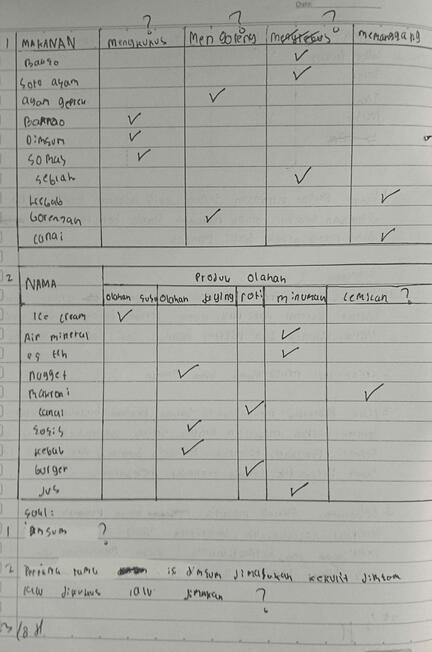 ? ? ?
1 MAKANAN Mengkukus Menggoreng Mengrebus memanggang
Bakso ✓
Soto ayam ✓
ayam geprek ✓
Bakpao ✓
Dimsum ✓
somay ✓
seblak ✓
kebab ✓
Gorengan ✓
canai ✓
2 NAMA Produk Olahan
olahan susu olahan daging roti minuman cemilan ?
Ice cream ✓
Air mineral ✓
es teh ✓
nugget ✓
makroni ✓
canai ✓
sosis ✓
kebab ✓
burger ✓
jus ✓
soal:
1 ?
2 is dimsum dimasukan kekulit dimsum
lalu dikukus lalu dimakan ?